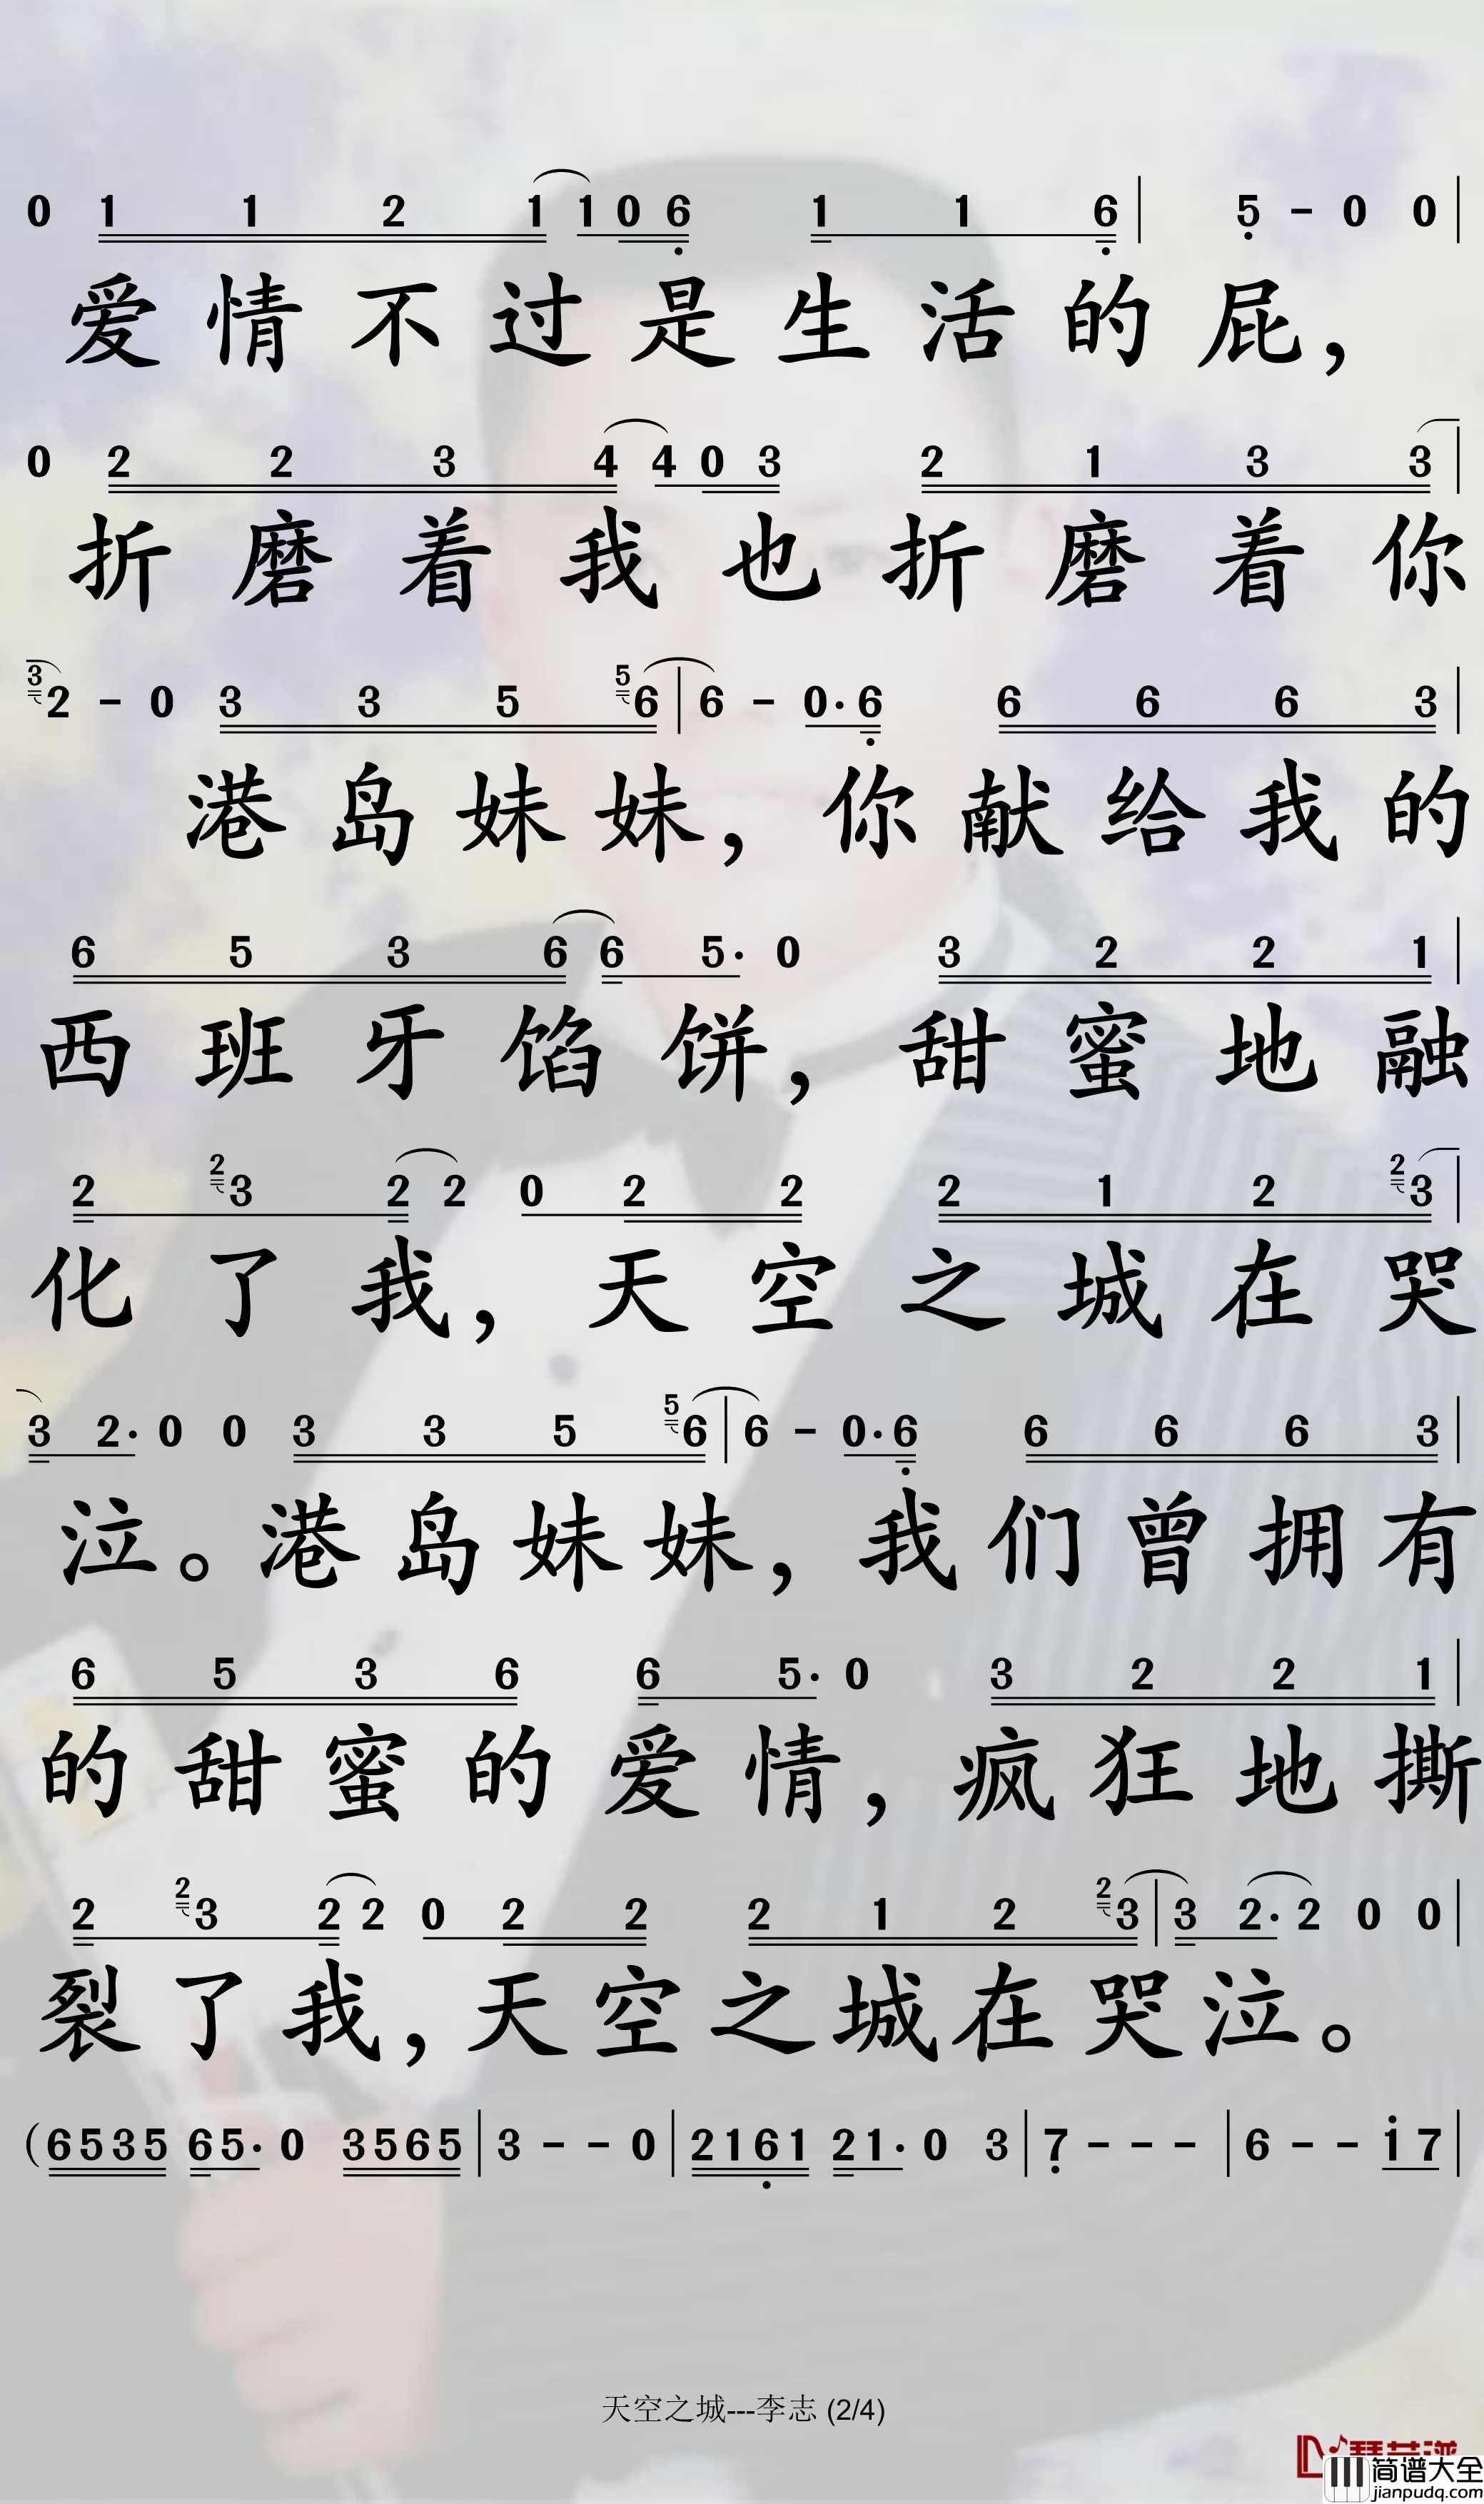 0 1 1 2 1 1 0 6 1 1 6 | 5 - 0 0 |
爱情不过是生活的屁，
0 2 2 3 4 4 0 3 2 1 3 3 |
折磨着我也折磨着你
3 2 - 0 3 3 5 5 6 | 6 - 0· 6 6 6 6 3 |
港岛妹妹，你献给我的
6 5 3 6 6 5· 0 3 2 2 1 |
西班牙馅饼，甜蜜地融
2 2 3 2 2 0 2 2 2 1 2 2 3 |
化了我，天空之城在哭
3 2· 0 0 3 3 5 5 6 | 6 - 0· 6 6 6 6 3 |
泣。港岛妹妹，我们曾拥有
6 5 3 6 6 5· 0 3 2 2 1 |
的甜蜜的爱情，疯狂地撕
2 2 3 2 2 0 2 2 2 1 2 2 3 | 3 2· 2 0 0 |
裂了我，天空之城在哭泣。
(6535 65· 0 3565 | 3 - - 0 | 2161 21· 0 3 | 7 - - - | 6 - - 1 7 |
天空之城---李志 (2/4)
简谱大全
jianpudq.com